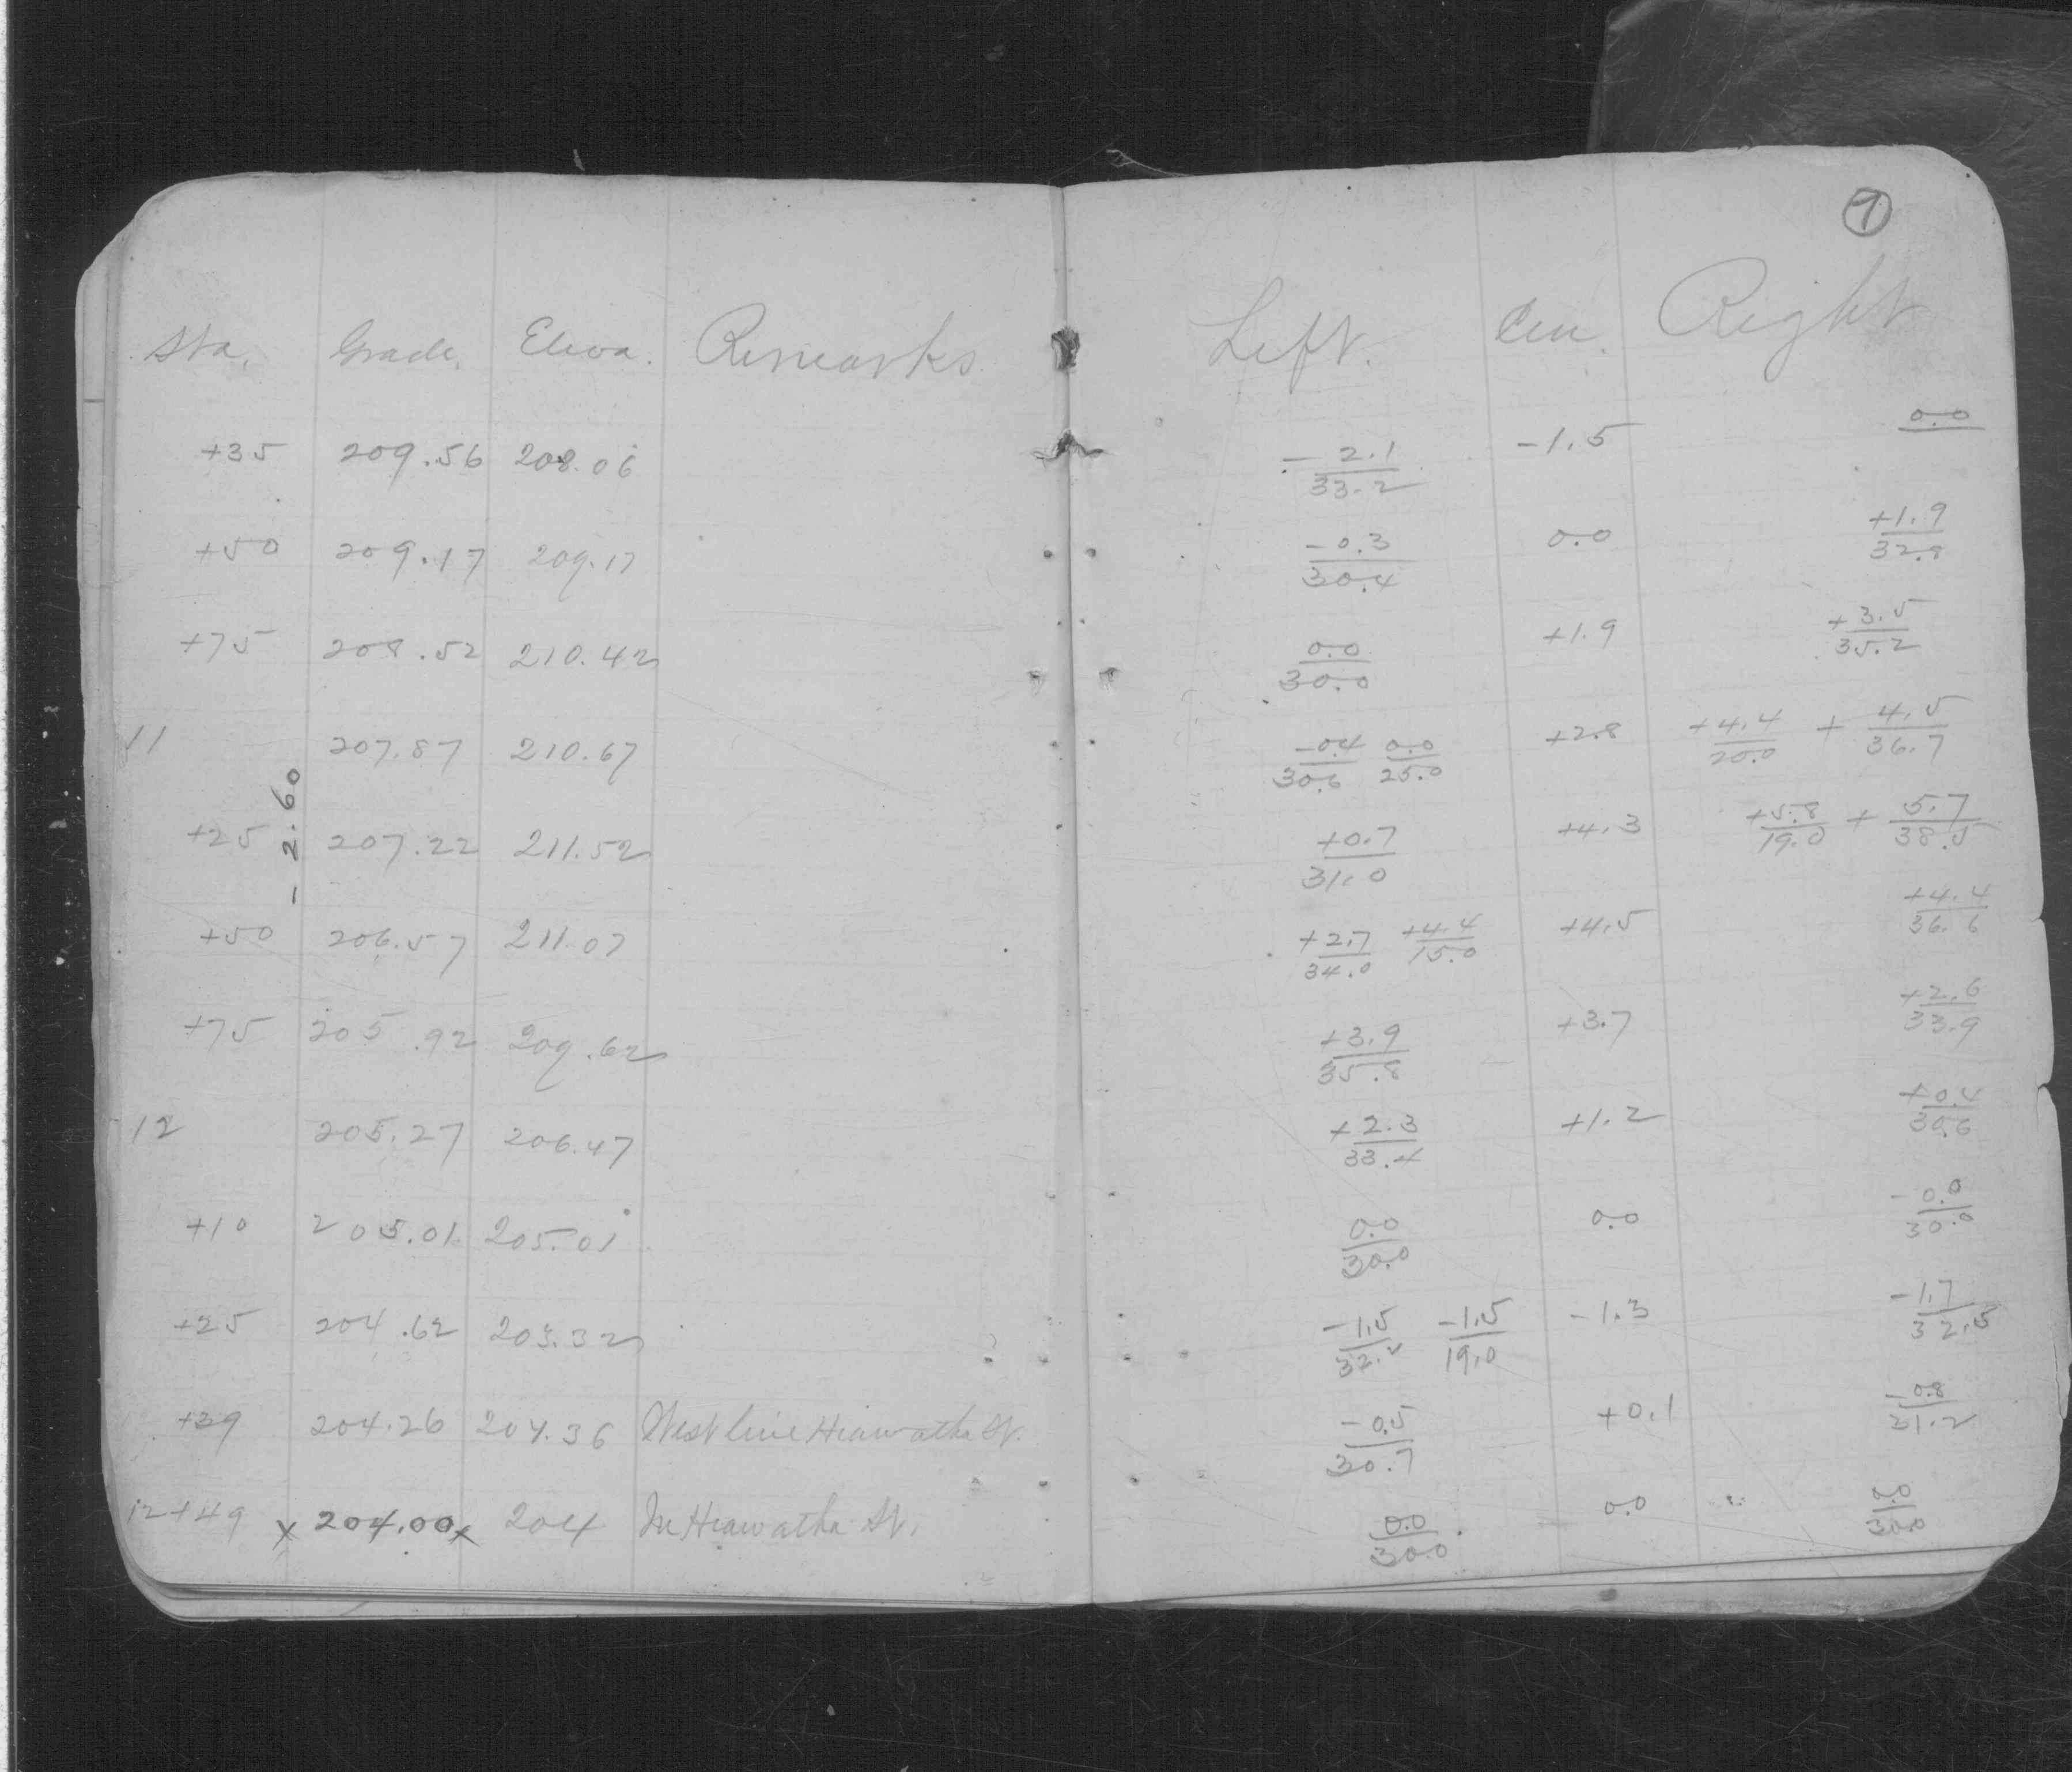 7
Sta. Grade. Eleva. Remarks. Left. Cen. Right
+35 209.56 208.06 -2.1/33.2 -1.5 0.0
+50 209.17 209.17 -0.3/30.4 0.0 +1.9/32.8
+75 208.52 210.42 0.0/30.0 +1.9 +3.5/35.2
11 207.87 210.67 -0.4/30.6 0.0/25.0 +2.8 +4.4/20.0 +4.5/36.7
-2.60
+25 207.22 211.52 +0.7/31.0 +4.3 +5.8/19.0 +5.7/38.5
+50 206.57 211.07 +2.7/34.0 +4.4/15.0 +4.5 +4.4/36.6
+75 205.92 209.62 +3.9/35.8 +3.7 +2.6/33.9
12 205.27 206.47 +2.3/33.4 +1.2 +0.4/30.6
+10 205.01 205.01 0.0/30.0 0.0 -0.0/30.0
+25 204.62 203.32 -1.5/32.2 -1.5/19.0 -1.3 -1.7/32.5
+39 204.26 204.36 West line Hiawatha St. -0.5/30.7 +0.1 -0.8/31.2
12+49 x 204.00 x 204 In Hiawatha St. 0.0/30.0 0.0 0.0/30.0